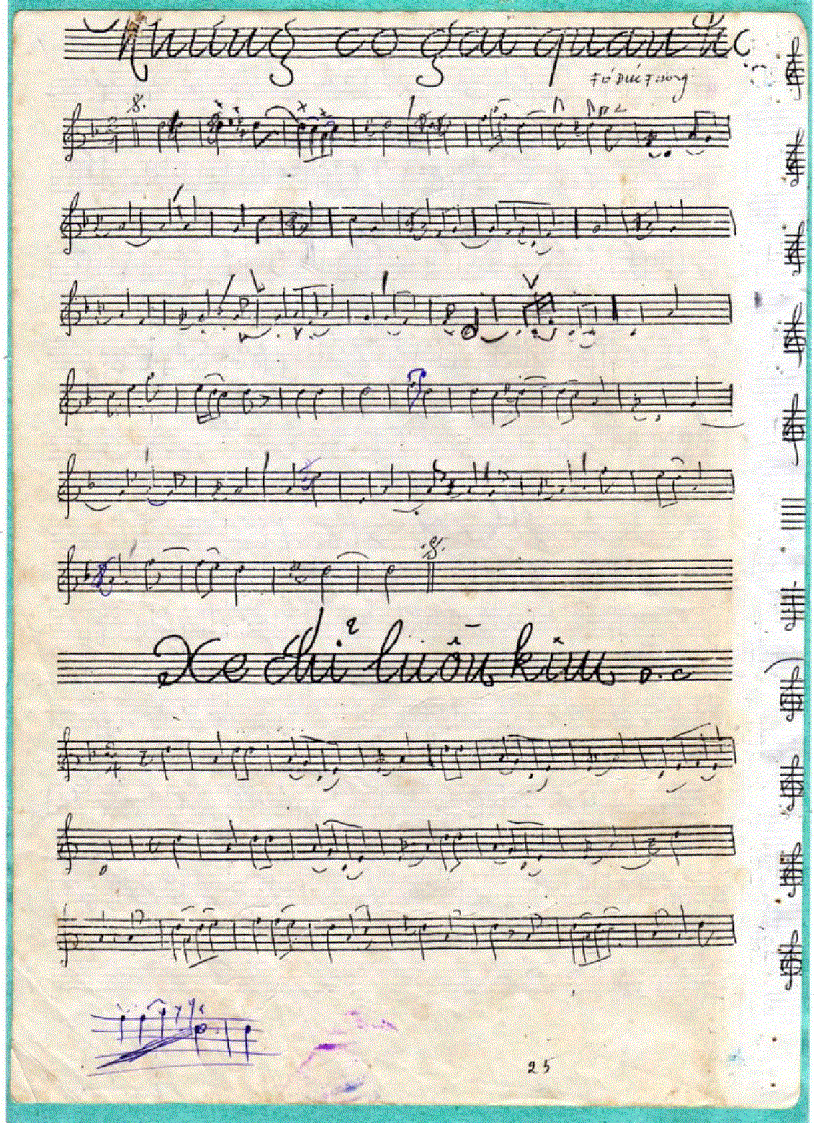 Những cô gái quan họ
Fó Đức Fương
2
4
Xe chỉ luồn kim D.C
2
4
25